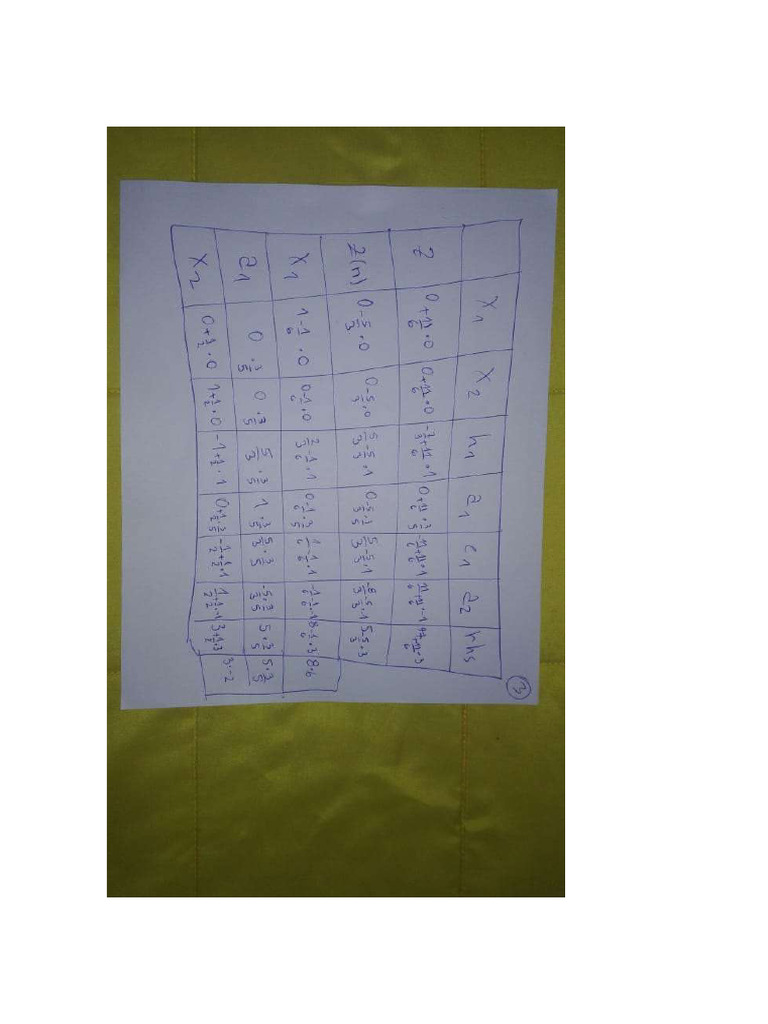 3
x1 x2 h1 a1 e1 a2 rhs
Z 0+11/6·0 0+11/6·0 0+11/6·3/5 11/6+11/6·1 11/6+11/6·-1
Z(n) 0-5/3·0 0-5/3·0 5/3-5/3·1 0-5/3·3/5 5/3-5/3·1 -8/3-5/3·1 5-5/3·3
x1 1-1/6·0 0-1/6·0 2/3-1/6·1 0-1/6·3/5 1/6-1/6·1 -1/6-1/6·-1 8-1/6·3 8·6
a1 0·3/5 0·3/5 5/3·3/5 1·3/5 5/3·3/5 -5/3·3/5 5·3/5 5·3/5
x2 0+1/2·0 1+1/2·0 -1+1/2·1 0+1/2·3/5 -1/2+1/2·1 1/2+1/2·-1 3+1/2·3 3·-2